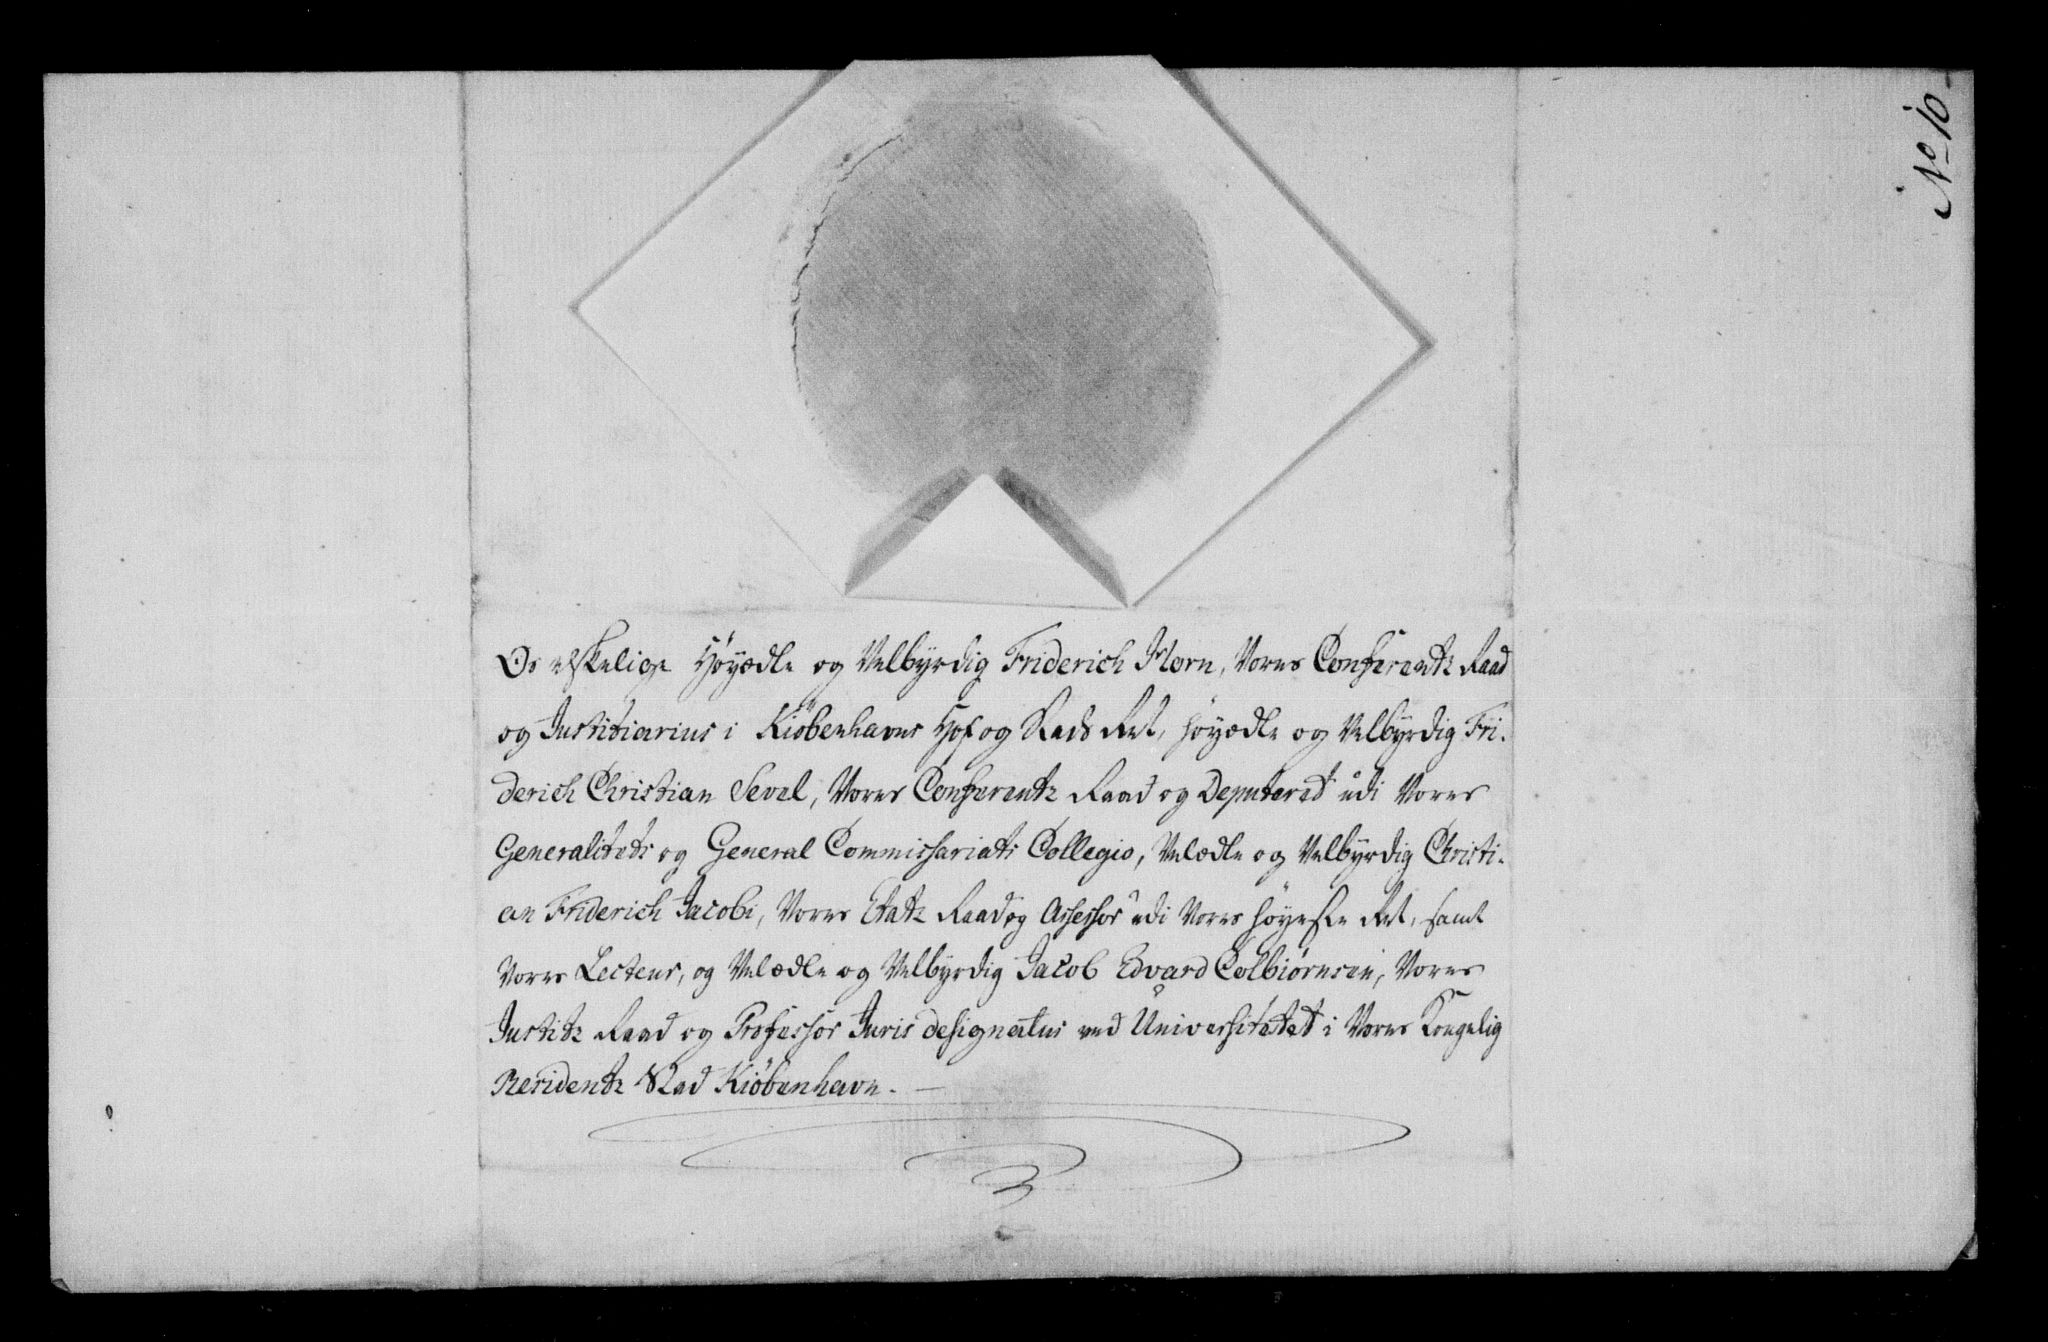 No 10
Os elskelige Høyædle og Velbyrdig Friderich Horn, Vores Conferentz Raad
og Justitiarius i Kiöbenhavns Hof og Stads Ret, Høyædle og Velbyrdig Fri-
derich Christian Sevel, Vores Conferentz Raad og Deputeret udi Vores
Generalitets og General Commissariats Collegio, Velædle og Velbyrdig Christi-
an Friderich Jacobi, Vores Etatz Raad og Assessor udi Vores Høyeste Ret, samt
Vores Lecteur, og Velædle og Velbyrdig Jacob Edvard Colbiørnsen, Vores
Justitz Raad og Professor Juris designatus ved Universitetet i Vores Kongelig
Residentz Stad Kiöbenhavn. —